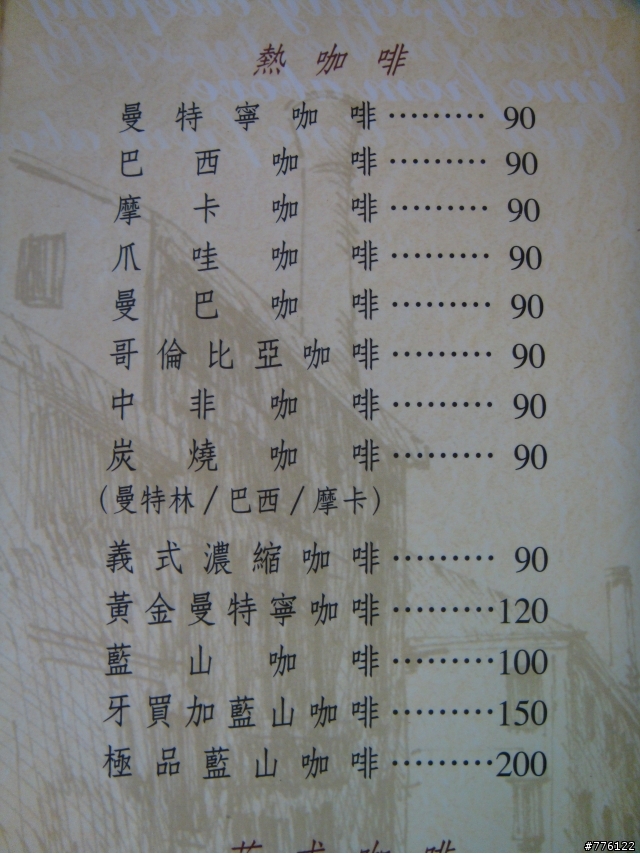 熱咖啡
曼特寧咖啡‧‧‧‧‧‧‧‧‧ 90
巴西咖啡‧‧‧‧‧‧‧‧‧ 90
摩卡咖啡‧‧‧‧‧‧‧‧‧ 90
爪哇咖啡‧‧‧‧‧‧‧‧‧ 90
曼巴咖啡‧‧‧‧‧‧‧‧‧ 90
哥倫比亞咖啡‧‧‧‧‧‧‧‧‧ 90
中非咖啡‧‧‧‧‧‧‧‧‧ 90
炭燒咖啡‧‧‧‧‧‧‧‧‧ 90
(曼特林/巴西/摩卡)
義式濃縮咖啡‧‧‧‧‧‧‧‧‧ 90
黃金曼特寧咖啡‧‧‧‧‧‧‧‧‧120
藍山咖啡‧‧‧‧‧‧‧‧‧100
牙買加藍山咖啡‧‧‧‧‧‧‧‧‧150
極品藍山咖啡‧‧‧‧‧‧‧‧‧200
式咖啡
#776122